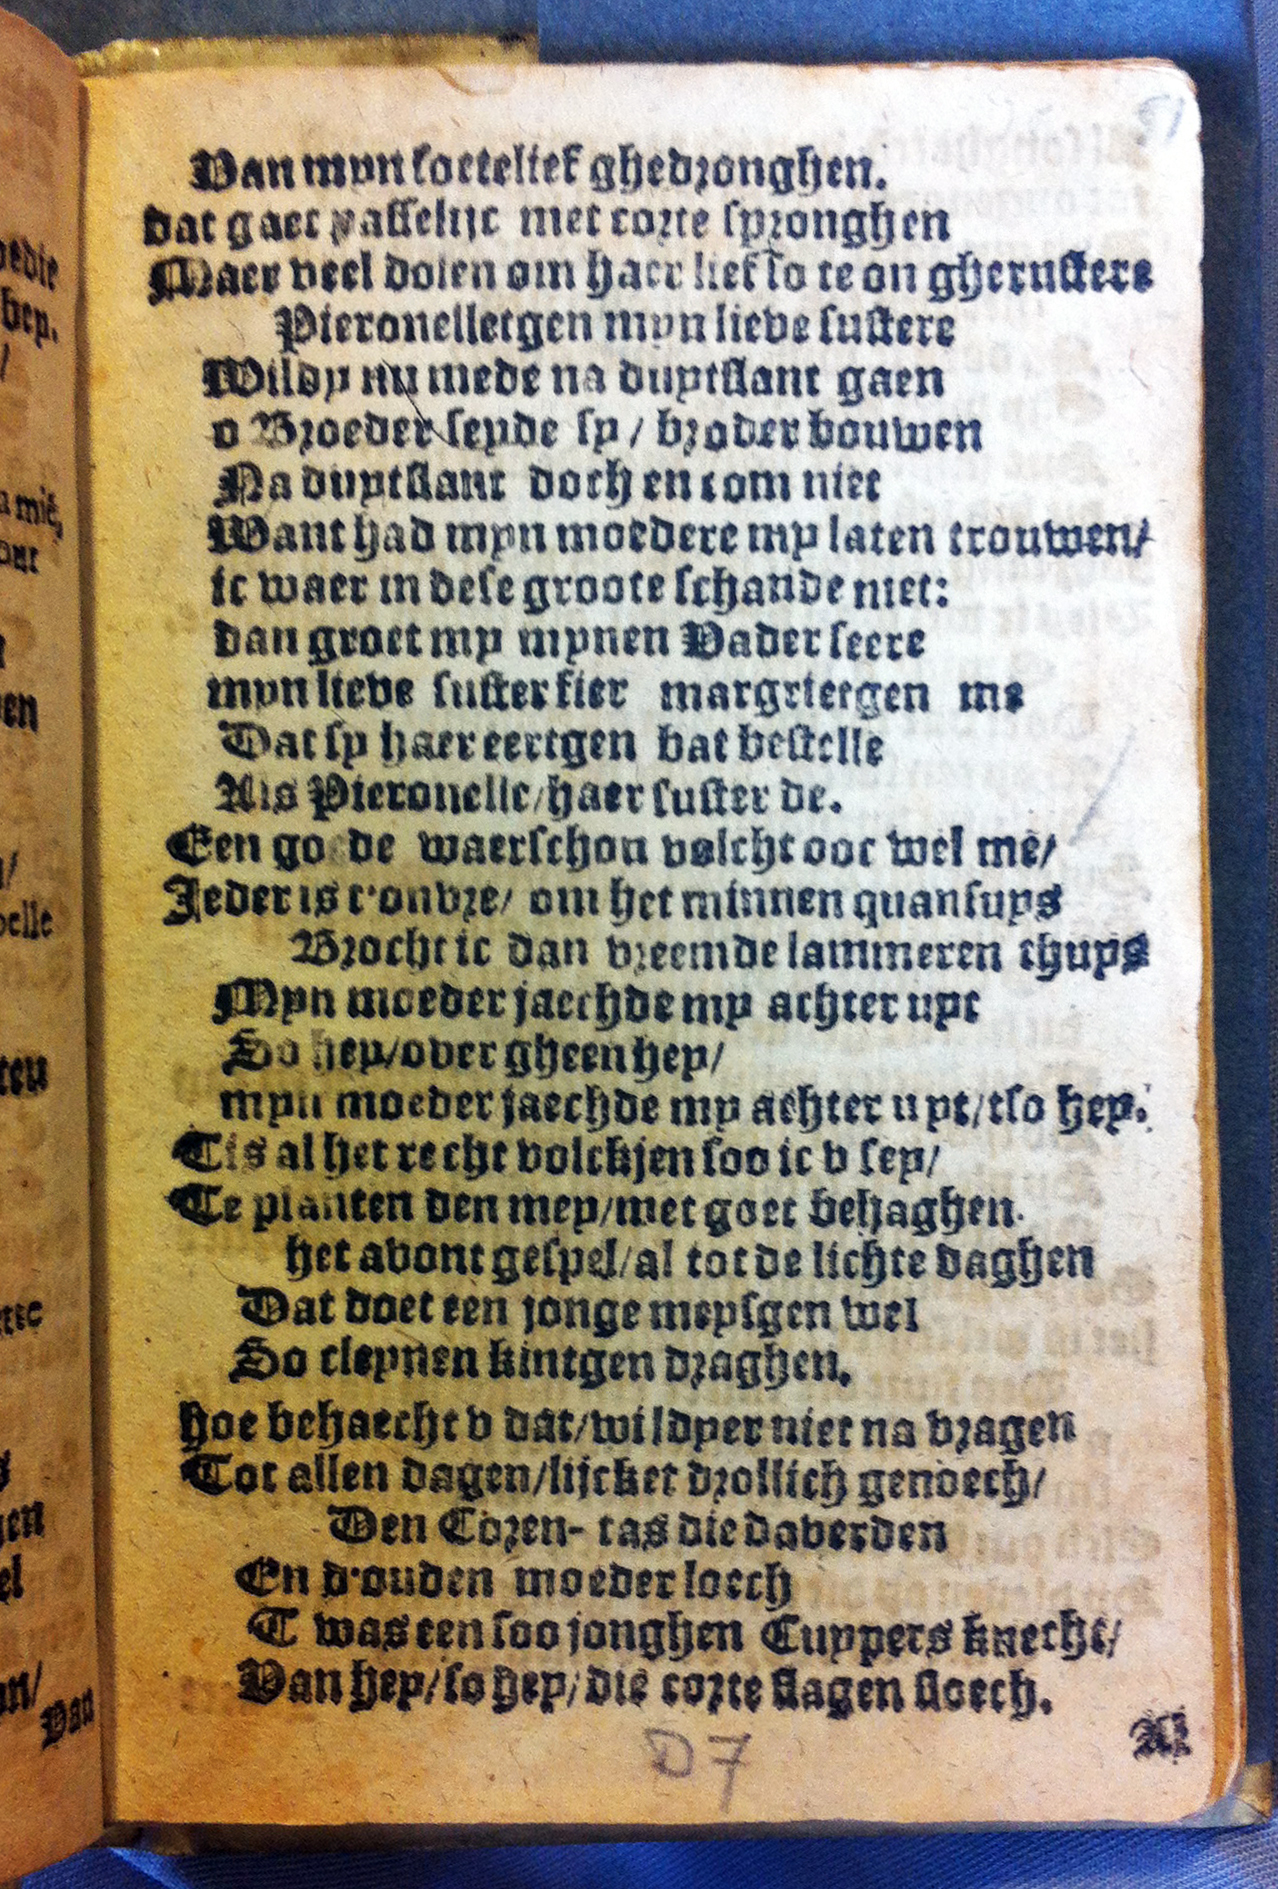 51
Van myn soetelief ghedronghen.
dat gaet passelijc met corte spronghen
Maer veel dolen om haer lief so te on gherustere
Pieronelletgen myn lieve sustere
Wildy nu mede na duytslant gaen
o Broeder seyde sy / broder bouwen
Na duytslant doch en com niet
Want had myn moedere my laten trouwen/
ic waer in dese groote schande niet:
dan groet my mynen Vader seere
myn lieve suster fier margrietgen me
Dat sy haer eertgen bat bestelle
Als Pieronelle/haer suster de.
Een goede waerschou volcht ooc wel mē/
Jeder is t'onvre/ om het minnen quansuys
Brocht ic dan vreemde lammeren thuys
Myn moeder jaechde my achter uyt
So hey/over gheen hey/
myn moeder jaechde my achter uyt/tso hey.
Tis al het recht volckjen soo ic v sey/
Te planten den mey/met goet behaghen.
het avont gespel/al tot de lichte daghen
Dat doet een jonge meysgen wel
So cleynen kintgen draghen.
hoe behaecht v dat/wildyer niet na vragen
Tot allen dagen/lijcket drollich genoech/
Den Coren- tas die daverden
En d'ouden moeder loech
T was een soo jonghen Cuypers knecht/
Van hey/so hey/die corte slagen sloech.
D7
Al